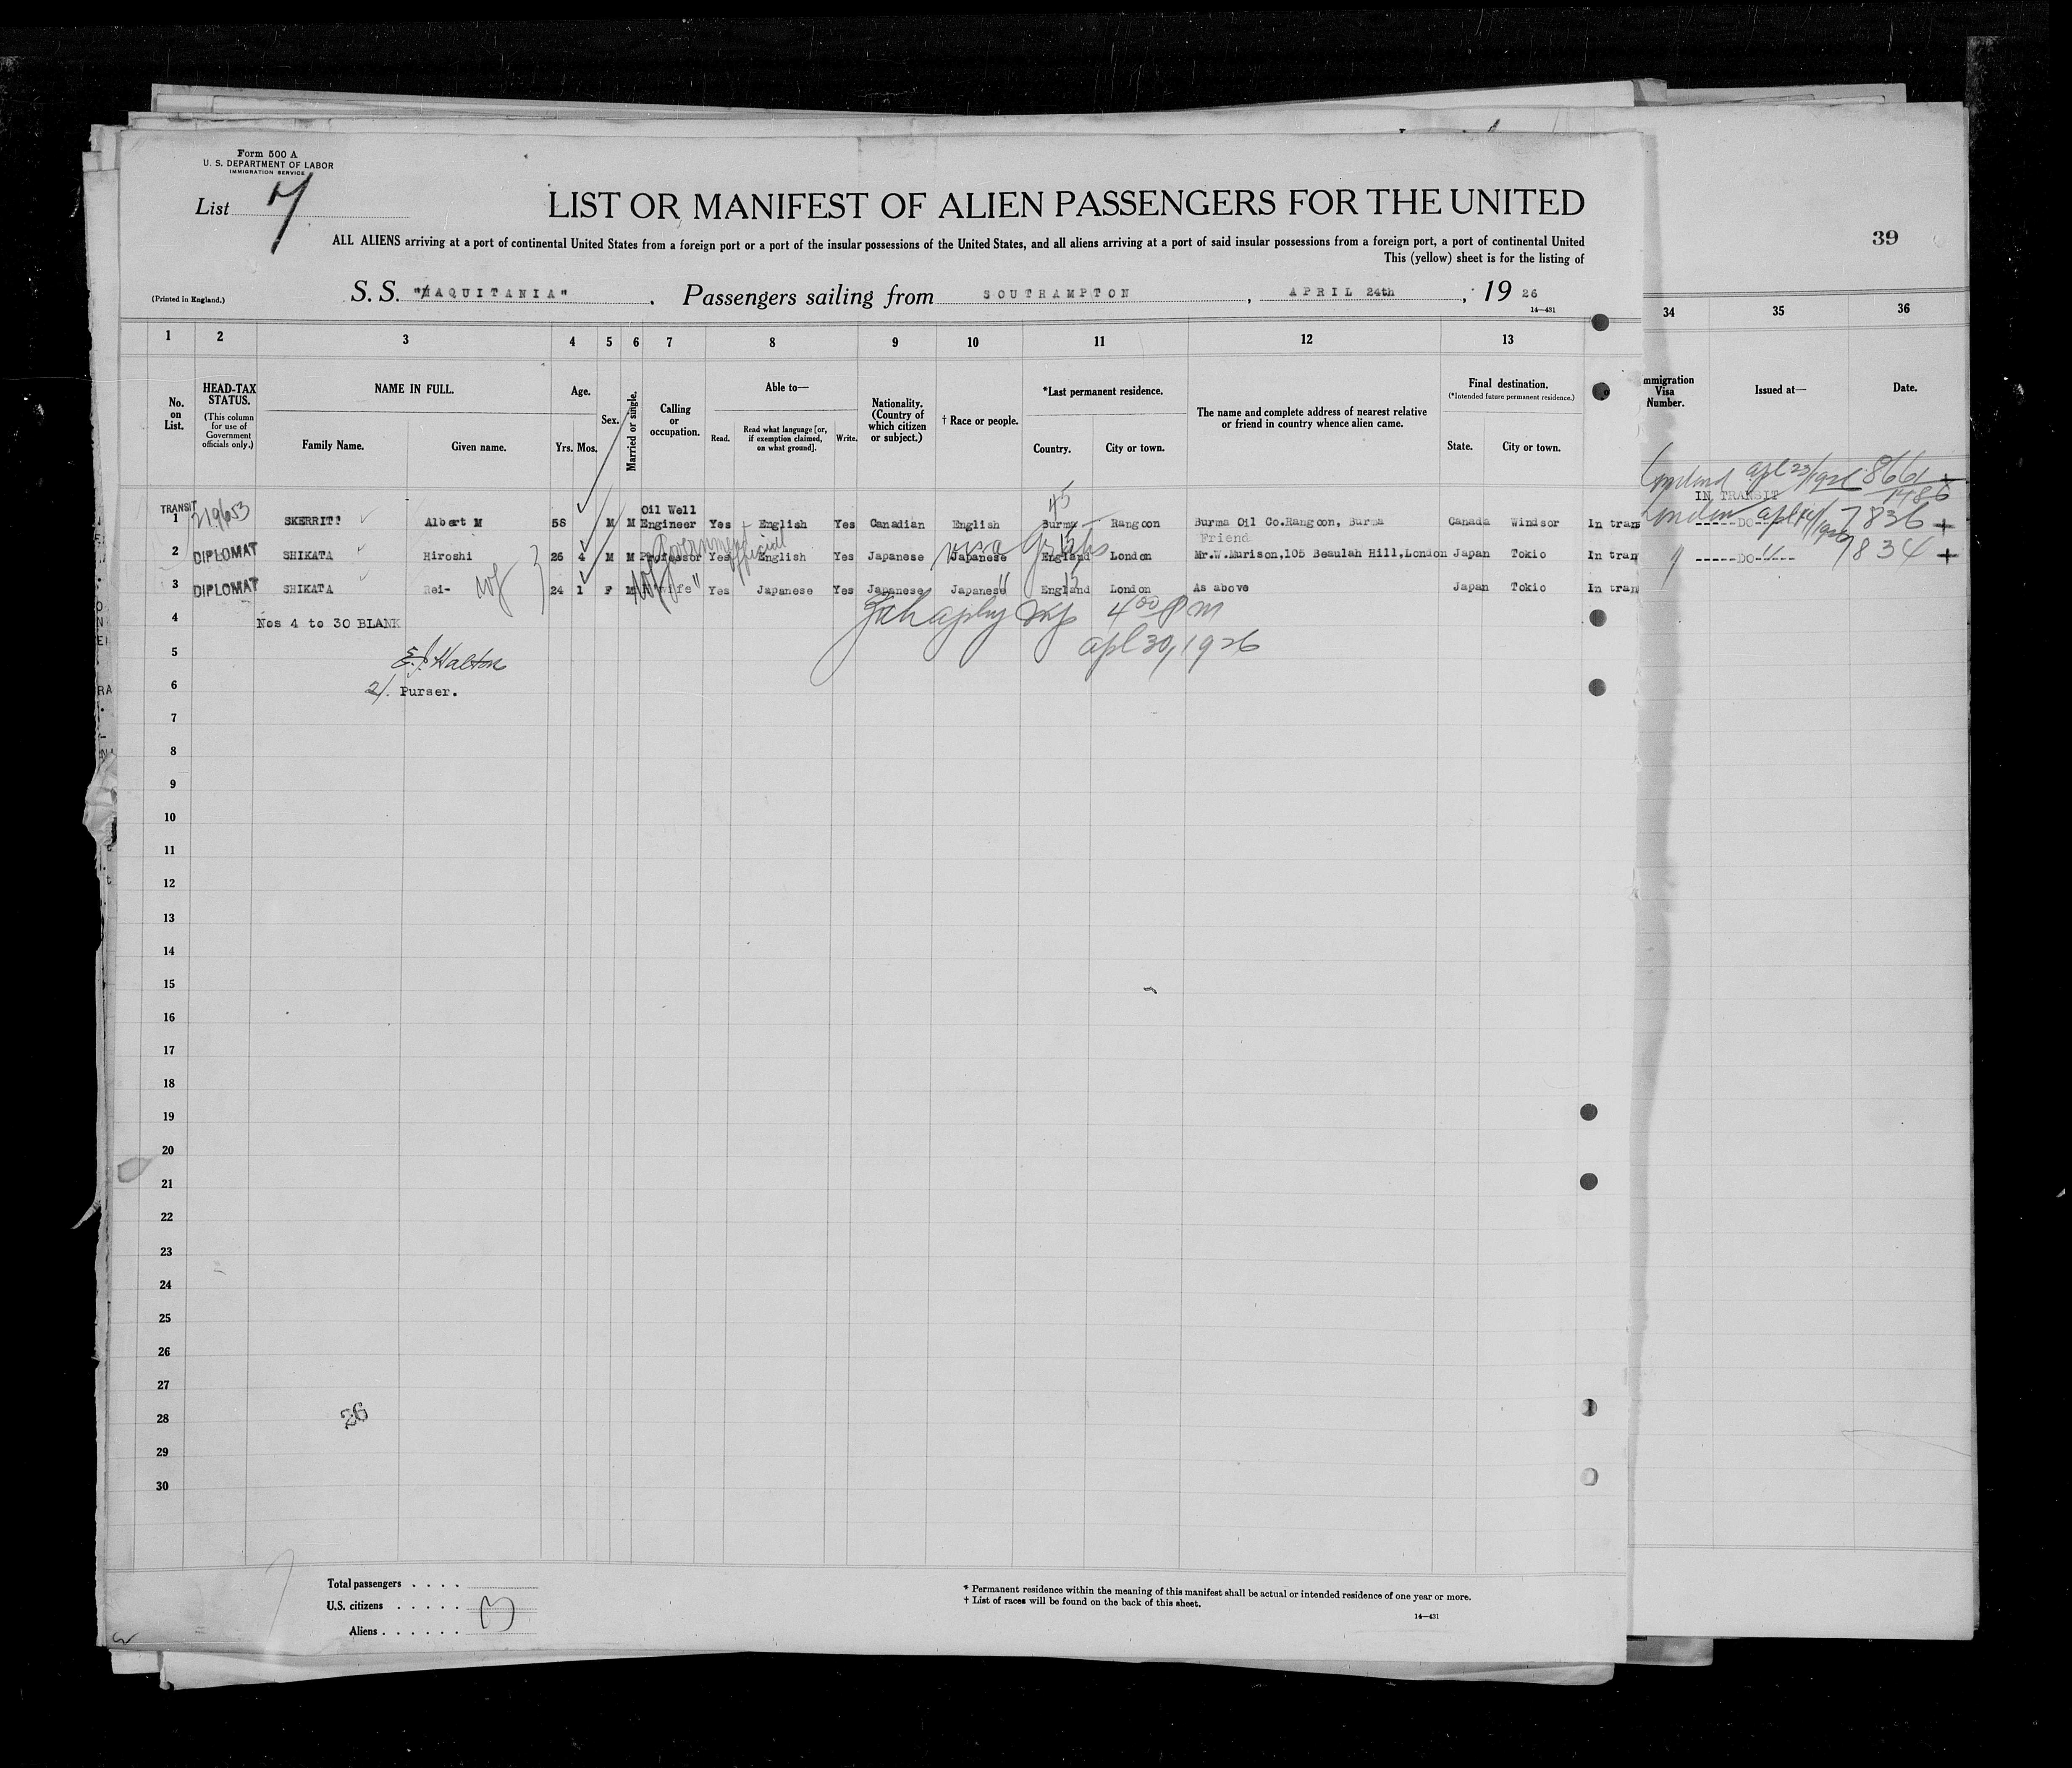 Form 500 A
U. S. DEPARTMENT OF LABOR
IMMIGRATION SERVICE
List 7
LIST OR MANIFEST OF ALIEN PASSENGERS FOR THE UNITED
ALL ALIENS arriving at a port of continental United States from a foreign port or a port of the insular possessions of the United States, and all aliens arriving at a port of said insular possessions from a foreign port, a port of continental United
This (yellow) sheet is for the listing of
39
(Printed in England.)
S. S. "AQUITANIA" . Passengers sailing from SOUTHAMPTON , APRIL 24th , 19 26
14—431
1 2 3 4 5 6 7 8 9 10 11 12 13 34 35 36
No. on List.
HEAD-TAX STATUS.
(This column for use of Government officials only.)
NAME IN FULL.
Family Name. Given name.
Age.
Yrs. Mos.
Sex.
Married or single.
Calling or occupation.
Able to—
Read. Read what language [or, if exemption claimed, on what ground]. Write.
Nationality. (Country of which citizen or subject.)
† Race or people.
*Last permanent residence.
Country. City or town.
The name and complete address of nearest relative or friend in country whence alien came.
Final destination.
(*Intended future permanent residence.)
State. City or town.
mmigration Visa Number.
Issued at—
Date.
TRANSIT 219653
1 SKERRITT Albert M 58 M M Oil Well Engineer Yes English Yes Canadian English Burma Rangoon Burma Oil Co.Rangoon, Burma Canada Windsor In tran
45
IN TRANSIT
Apl 23/1926 8661
London 7836 +
Government official
visa Gratis
Friend
2 DIPLOMAT SHIKATA Hiroshi 26 4 M M Professor Yes English Yes Japanese Japanese England London Mr.W.Murison,105 Beaulah Hill,London Japan Tokio In tran
-----DO----- 7834 +
3 DIPLOMAT SHIKATA Rei- wf 24 1 F M Wife Yes Japanese Yes Japanese Japanese England London As above Japan Tokio In tran
4 Nos 4 to 30 BLANK
4 00 P m
5 Apl 30, 1926
6 Purser.
7
8
9
10
11
12
13
14
15
16
17
18
19
20
21
22
23
24
25
26
27
28 26
29
30
Total passengers . . . .
U.S. citizens . . . . .
Aliens . . . . . . 3
* Permanent residence within the meaning of this manifest shall be actual or intended residence of one year or more.
† List of races will be found on the back of this sheet.
14—431